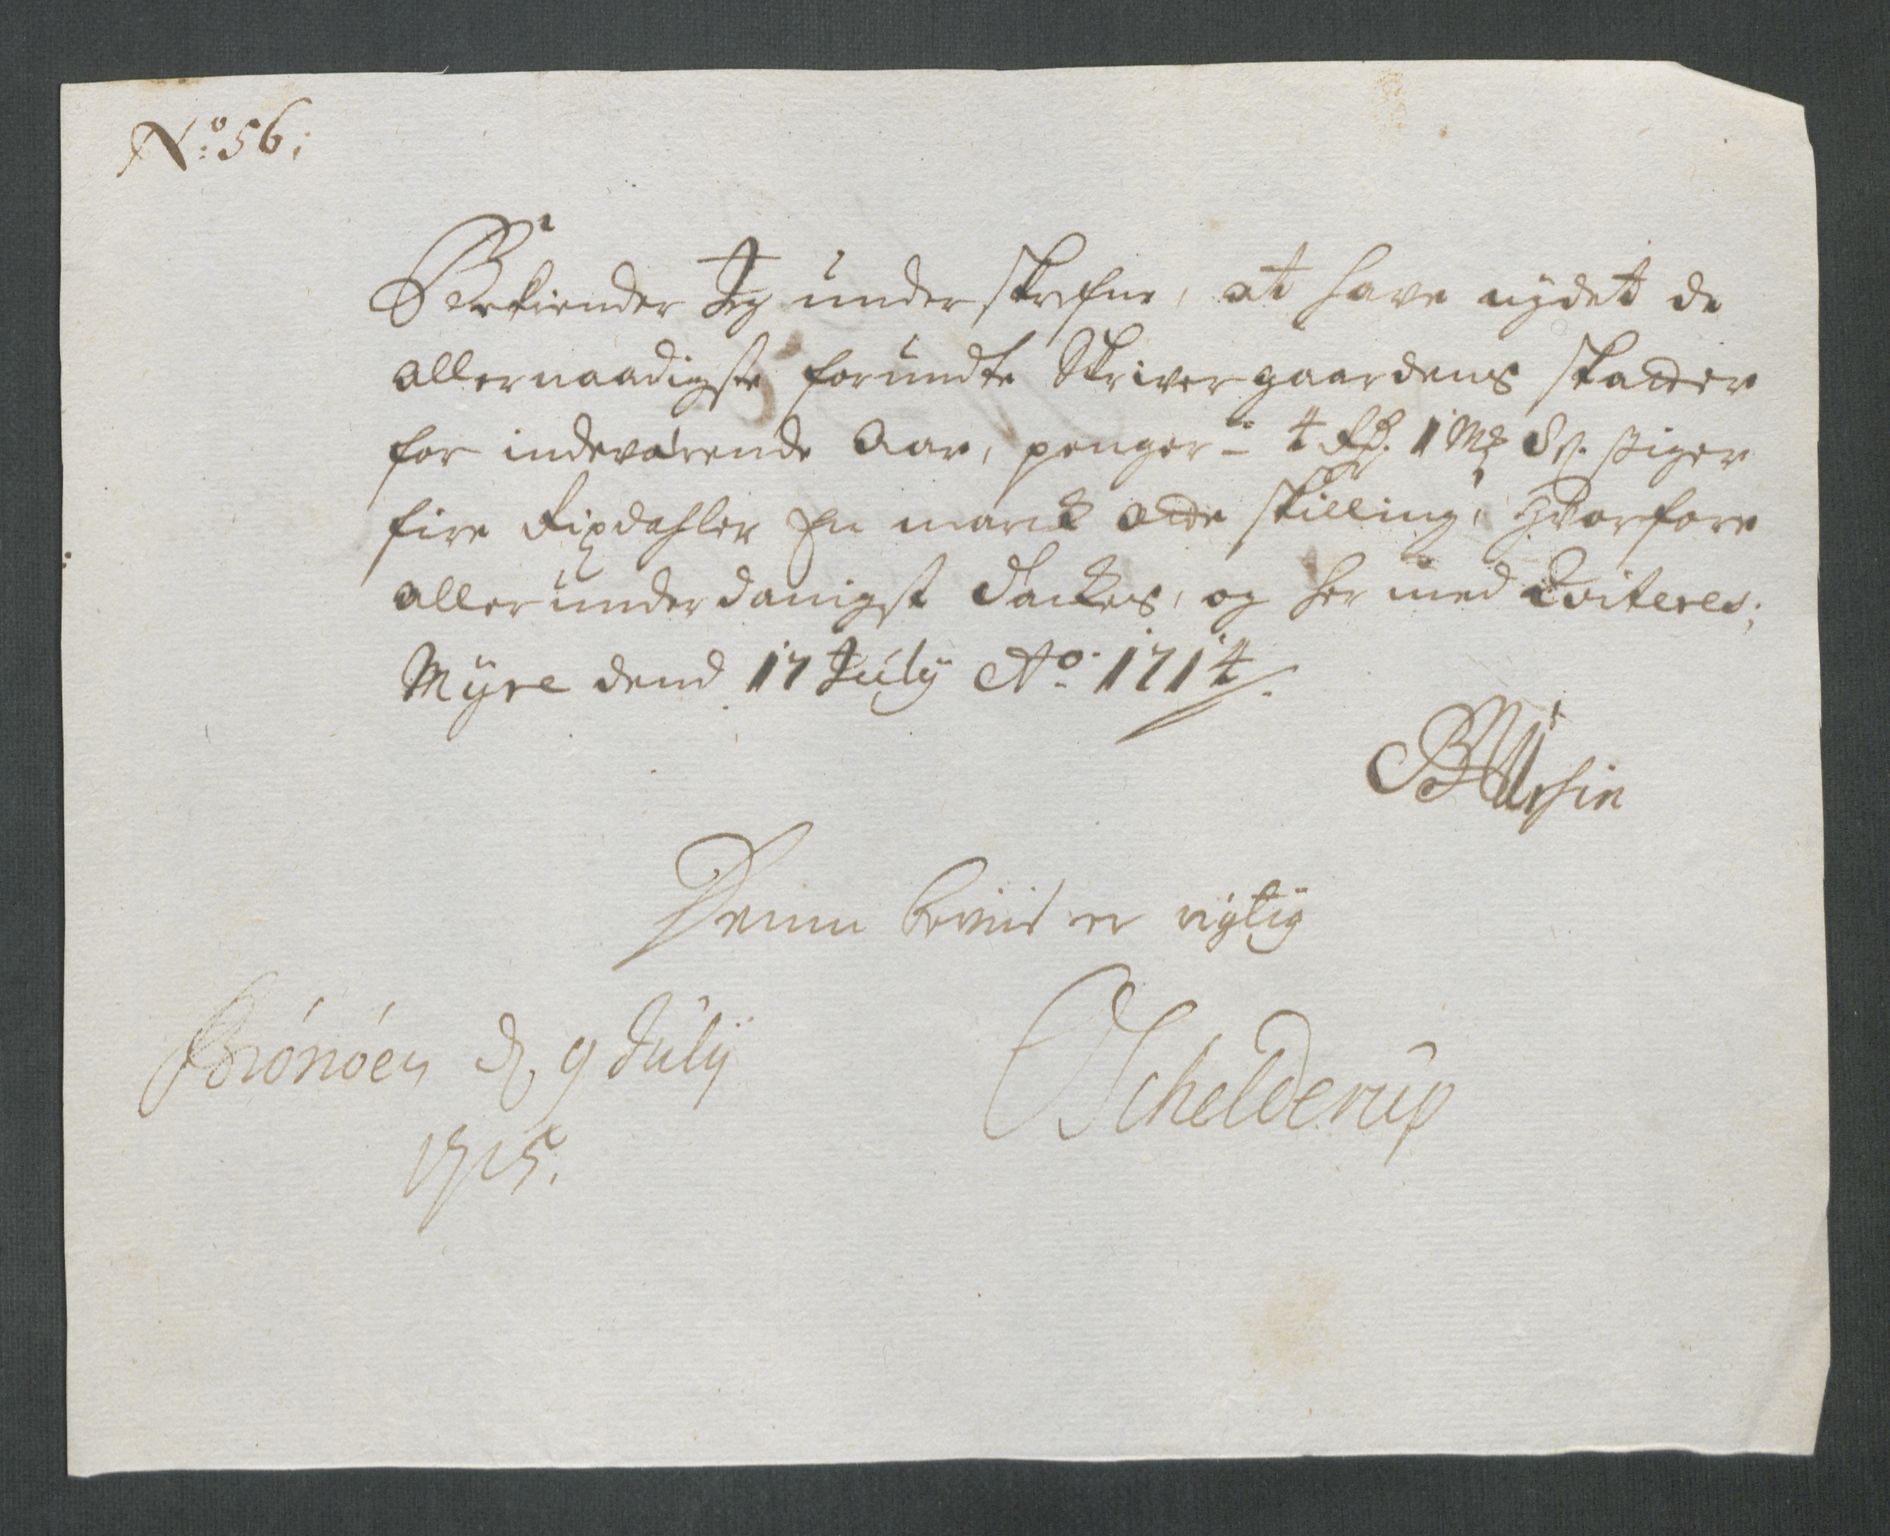 No: 56;
Bekiender Jeg underskrefne, at have nydet de
allernaadigste forundte Skrivergaardens skatter
for indeværende Aar, penger - 4 Rdr. 1 Mk 8 s. siger
fire Rixdahler En marck otte skilling, hvorfore
allerunderdanigst tackes, og her med Qviteres;
Myre dend 17 July Ao. 1714.
Denne beviis er rigtig
Brónóen d. 9 Júlij
1715.
Schelderup